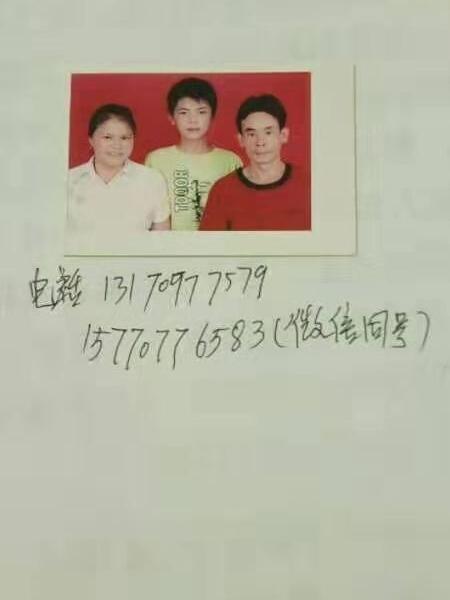 TOOOH
电话 13170977579
15770776583(微信同号)